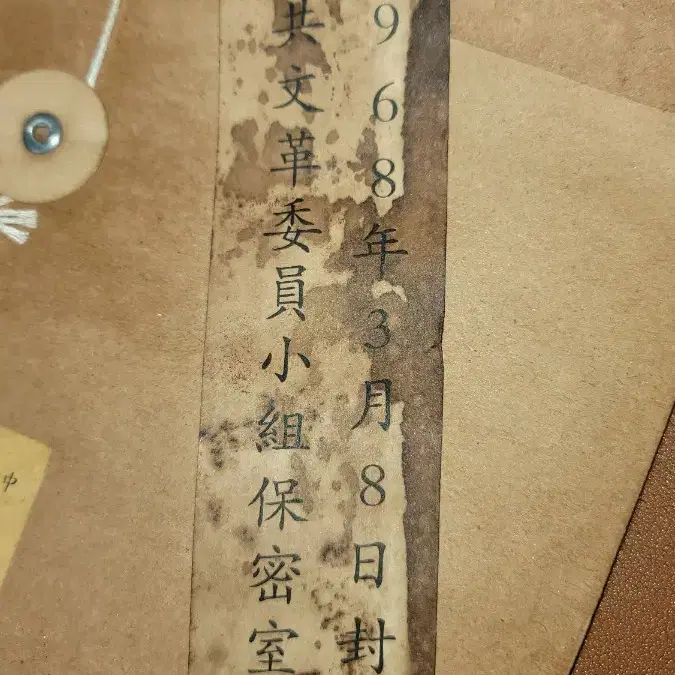 9968年3月8日封
共文革委員小組保密室